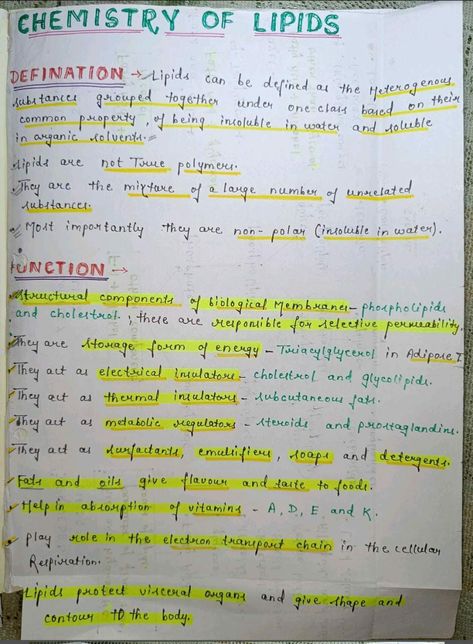 CHEMISTRY OF LIPIDS
DEFINATION → Lipids can be defined as the Heterogenous
substances grouped together under one class based on their
common property of being insoluble in water and soluble
in organic solvents.
Lipids are not True polymers.
They are the mixture of a large number of unrelated
substances.
Most importantly they are non-polar (insoluble in water).
FUNCTION →
Structural components of biological Membranes - phospholipids
and cholestrol; these are responsible for selective permeability
They are storage form of energy - Triacylglycerol in Adipose T
They act as electrical insulators - cholestrol and glycolipids.
They act as thermal insulators - subcutaneous fats.
They act as metabolic regulators - steroids and prostaglandins.
They act as surfactants, emulsifiers, soaps and detergents.
Fats and oils give flavour and taste to foods.
Help in absorption of vitamins - A, D, E, and K.
Play role in the electron transport chain in the cellular
Respiration.
Lipids protect visceral organs and give shape and
contour TO the body.